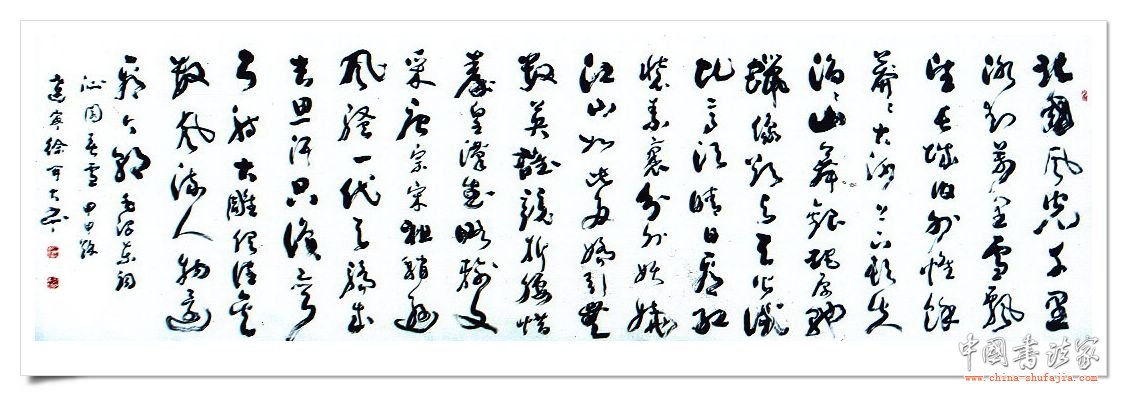 北國風光千里
冰封萬里雪飄
望長城内外惟餘
莽〻大河上下頓失
滔〻山舞銀蛇原馳
蠟象欲與天公試
比高須晴日看紅
裝素裹分外妖嬈
江山如此多嬌引無
數英雄競折腰惜
秦皇漢武略輸文
采唐宗宋祖稍遜
風騷一代天驕成
吉思汗只識彎
弓射大雕俱往矣
數風流人物還
看今朝 毛澤東詞
沁園春雪 甲申
遼寧徐可
中國书法家
www.china-shufajia.com